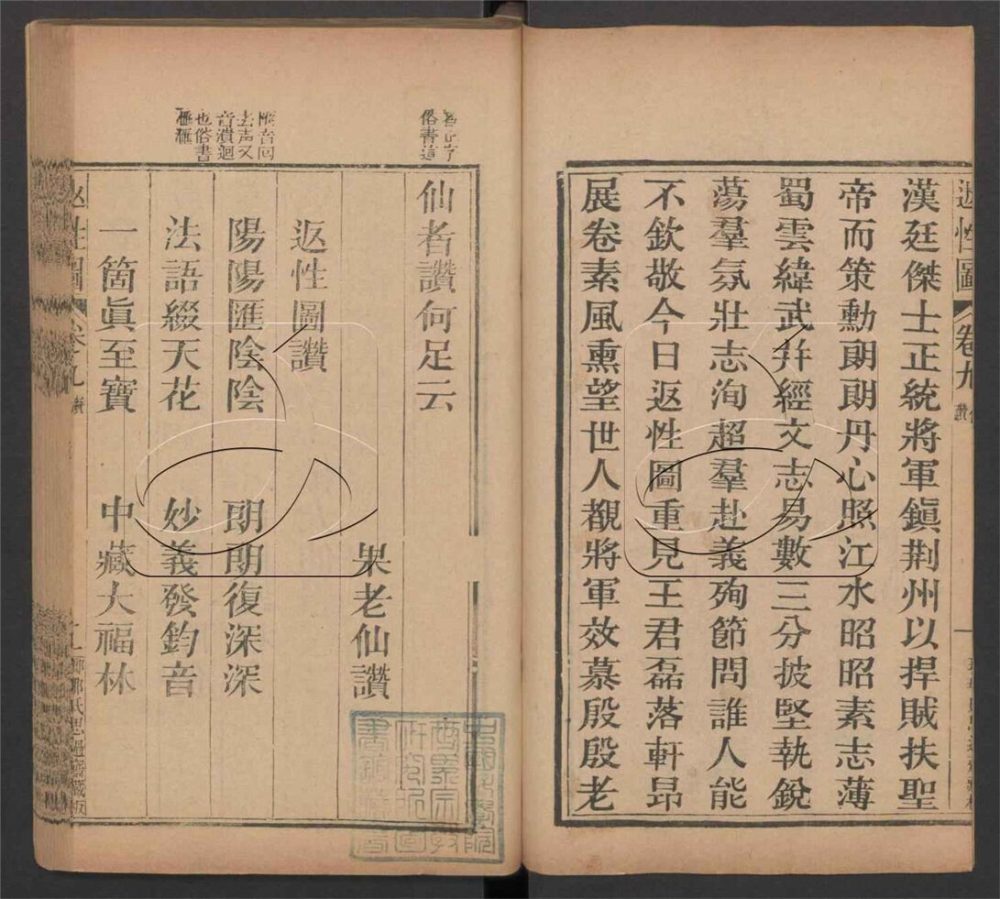 返性圖 卷九
漢廷傑士正統將軍鎭荆州以捍賊扶聖
帝而策勳朗朗丹心照江水昭昭素志薄
蜀雲緯武并經文志易數三分披堅執銳
蕩羣氛壯志洵超羣赴義殉節問誰人能
不欽敬今日返性圖重見王君磊落軒昂
展卷素風熏望世人覩將軍效慕殷殷老
俗書這
仙者讚何足云
果老仙讚
返性圖讚
去声又
音潰迴
也俗書
陽陽匯陰陰 朗朗復深深
法語綴天花 妙義發鈞音
一箇眞至寶 中藏大福林
返性圖 卷九
氏思過齋藏板